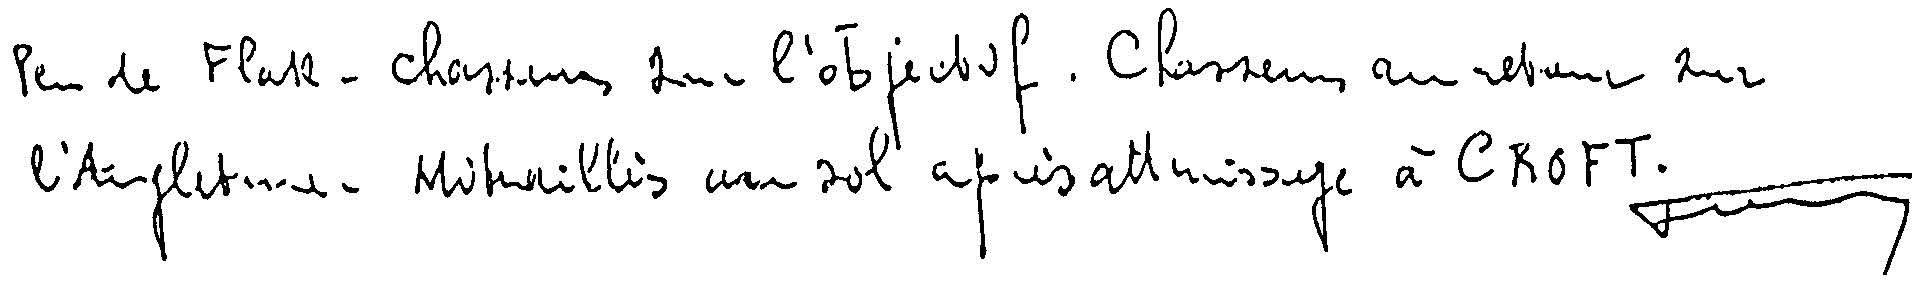 Peu de Flak - chasseurs sur l'objectif. Chasseurs au retour sur
l'Angleterre - Mitraillés au sol après atterrissage à CROFT.